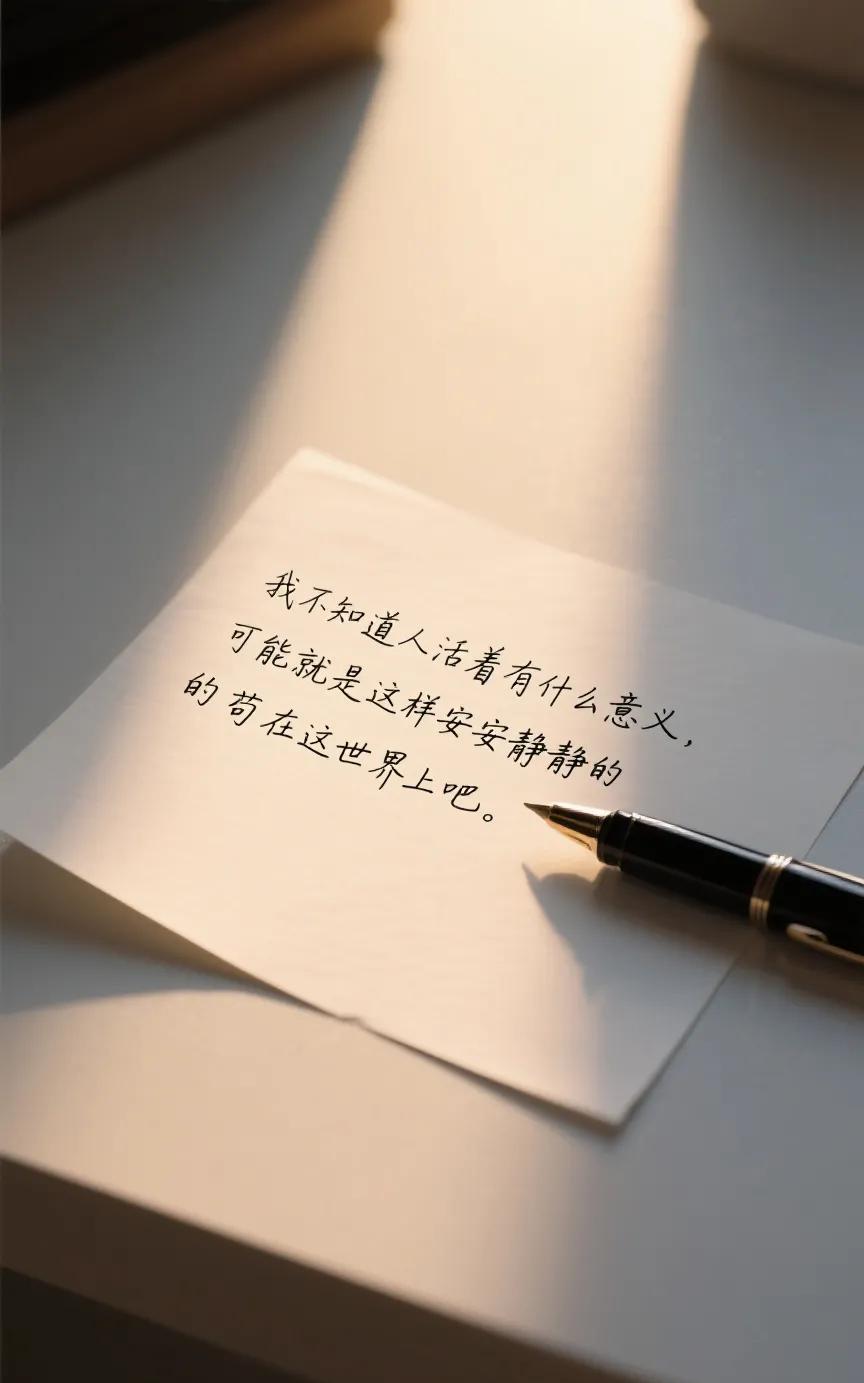 我不知道人活着有什么意义，
可能就是这样安安静静的
的苟在这世界上吧。